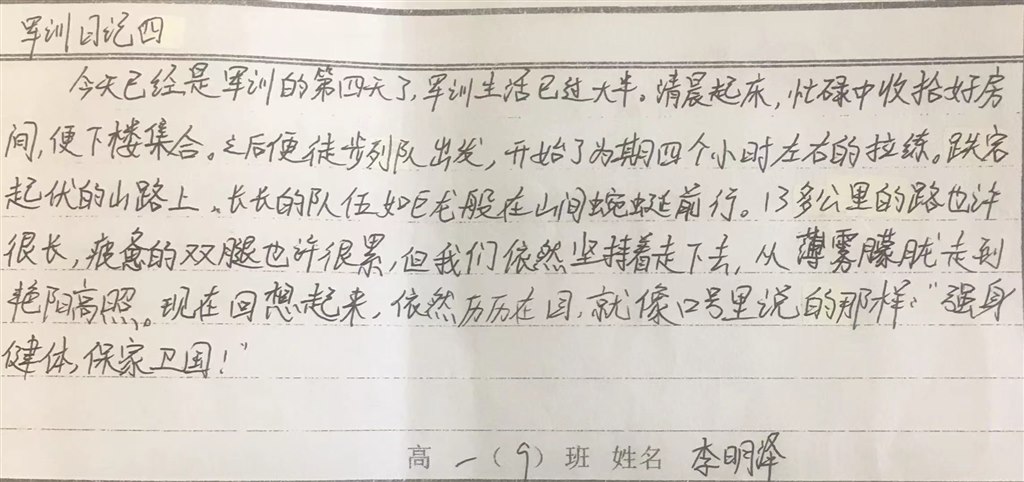 军训日记四
今天已经是军训的第四天了,军训生活已过大半。清晨起床,忙碌中收拾好房
间,便下楼集合。之后便徒步列队出发,开始了为期四个小时左右的拉练。跌宕
起伏的山路上、长长的队伍如巨龙般在山间蜿蜒前行。13多公里的路也许
很长,疲惫的双腿也许很累,但我们依然坚持着走下去,从薄雾朦胧走到
艳阳高照。现在回想起来,依然历历在目,就像口号里说的那样:“强身
健体,保家卫国!”
高一(9)班 姓名 李明泽